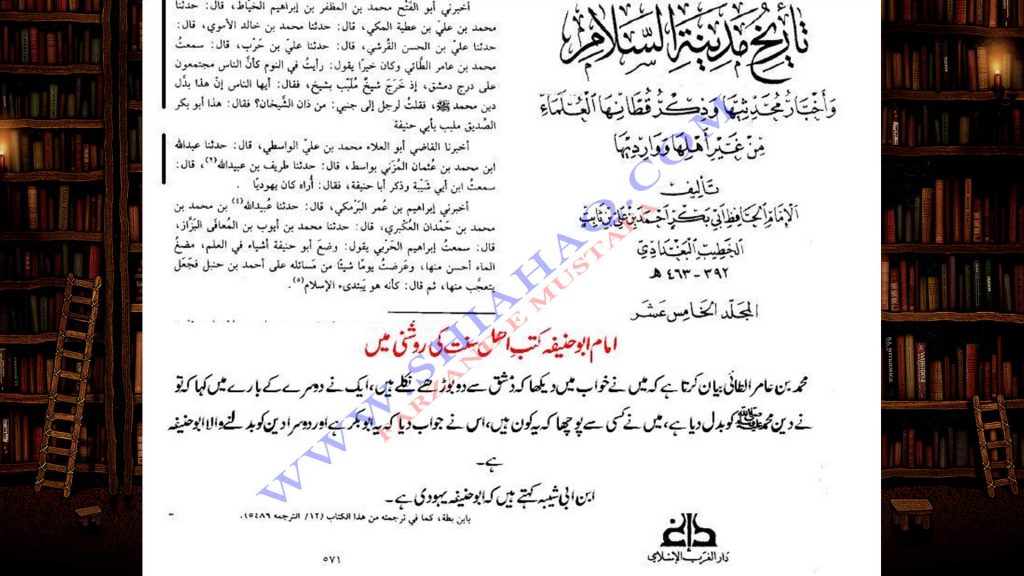 أخبرني أبو الفتح محمد بن المظفر بن إبراهيم الخياط، قال: حدثنا
محمد بن علي بن عطية المكي، قال: حدثنا محمد بن خالد الأموي، قال:
حدثنا علي بن الحسن القرشي، قال: حدثنا علي بن حَرْب، قال: سمعتُ
محمد بن عامر الطَّائي وكان خيرًا يقول: رأيتُ في النوم كأنَّ الناس مجتمعون
على درج دمشق، إذ خَرَجَ شيخٌ مُلَبَّب بشيخ، فقال: أيها الناس إنَّ هذا بدَّل
دين محمد ﷺ، فقلتُ لرجل إلى جنبي: من ذان الشَّيخان؟ فقال: هذا أبو بكر
الصِّديق ملبب بأبي حنيفة
أخبرنا القاضي أبو العلاء محمد بن علي الواسطي، قال: حدثنا عبدالله
ابن محمد بن عُثمان المُزَني بواسط، قال: حدثنا طريف بن عبيدالله(٢)، قال:
سمعتُ ابن أبي شَيْبة وذكر أبا حنيفة، فقال: أُراه كان يهوديًا.
أخبرني إبراهيم بن عُمر البَرْمكي، قال: حدثنا عُبيدالله(٤) بن محمد بن
محمد بن حَمْدان العُكْبَري، قال: حدثنا محمد بن أيوب بن المُعافى البَزَّاز،
قال: سمعتُ إبراهيم الحَرْبي يقول: وضعَ أبو حنيفة أشياء في العلم، مضغُ
الماء أحسن منها، وعَرَضتُ يومًا شيئًا من مَسائله على أحمد بن حنبل فجَعَل
يتعجَّب منها، ثم قال: كأنه هو يَبتدىء الإسلام(٥).
تاريخ مدينة السلام
وأخبار محدثيها وذكر قطانها العلماء
من غير أهلها وواردها
تأليف
الإمام الحافظ أبي بكر أحمد بن علي بن ثابت
الخطيب البغدادي
٣٩٢ - ٤٦٣ هـ
المجلد الخامس عشر
امام ابو حنیفہ کتب اھل سنت کی روشنی میں
محمد بن عامر الطائی بیان کرتا ہے کہ میں نے خواب میں دیکھا کہ دمشق سے دو بوڑھے نکلے ہیں، ایک نے دوسرے کے بارے میں کہا کہ تو
نے دین محمد ﷺ کو بدل دیا ہے، میں نے کسی سے پوچھا کہ یہ کون ہیں، اس نے جواب دیا کہ یہ ابو بکر ہے اور دوسرا دین کو بدلنے والا ابو حنیفہ
ہے۔
ابن ابی شیبہ کہتے ہیں کہ ابو حنیفہ یہودی ہے۔
بابن بطة، كما في ترجمته من هذا الكتاب (١٢/ الترجمه ٥٤٨٦).
٥٧١
دار الغرب الإسلامي
WWW.SHIAHAQ.COM
FARZAND E MUSTAFA